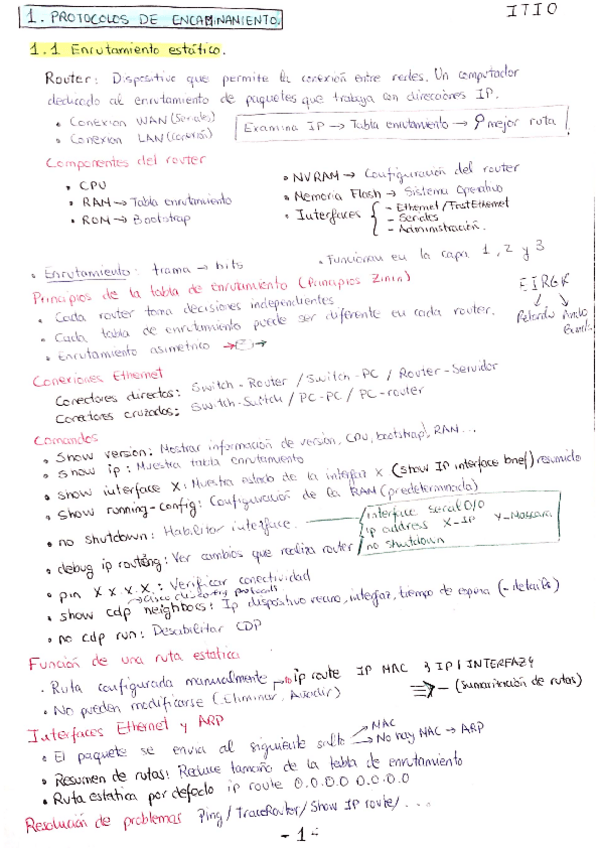 ITIO
1. PROTOCOLOS DE ENCAMINAMIENTO.
1.1 Enrutamiento estático.
Router: Dispositivo que permite la conexión entre redes. Un computador
dedicado al enrutamiento de paquetes que trabaja con direcciones IP.
• Conexion WAN (Seriales)
• Conexion LAN
Examina IP → Tabla enrutamiento → mejor ruta
Componentes del router
• CPU
• RAM → Tabla enrutamiento
• ROM → Bootstrap
• NVRAM → Configuración del router
• Memoria Flash → Sistema Operativo
• Interfaces { - Ethernet/FastEthernet
- Seriales
- Administración.
• Enrutamiento: trama → bits
• Funcionan en la capa 1, 2 y 3
Principios de la tabla de enrutamiento (Principios Zinin)
• Cada router toma decisiones independientes
• Cada tabla de enrutamiento puede ser diferente en cada router.
• Enrutamiento asimetrico
EIRGK
Retardo Ancho
Banda
Conexiones Ethernet
Conectores directos: Switch-Router / Switch-PC / Router-Servidor
Conectores cruzados: Switch-Switch / PC-PC / PC-router
Comandos
• Show version: Mostrar información de versión, CPU, bootstrap, RAM...
• Show ip: Muestra tabla enrutamiento
• Show interface X: Muestra estado de la interfaz X (show IP interface brief) resumido
• Show running-config: Configuración de la RAM (predeterminada)
• no shutdown: Habilitar interface.
interface serial 0/0
ip address X-IP Y-Mascara
no shutdown
• debug ip routing: Ver cambios que realiza router
• pin X.X.X.X.: Verificar conectividad
• show cdp neighbors: Ip dispositivo vecino, interfaz, tiempo de espera (-details)
• no cdp run: Desabilitar CDP
Función de una ruta estatica
• Ruta configurada manualmente → ip route IP MAC 3 IP/INTERFAZ4
• No pueden modificarse (Eliminar, Añadir)
- (sumarización de rutas)
Interfaces Ethernet y ARP
• El paquete se envia al siguiente salto → MAC
→ No hay MAC → ARP
• Resumen de rutas: Reduce tamaño de la tabla de enrutamiento
• Ruta estatica por defecto ip route 0.0.0.0 0.0.0.0
Resolución de problemas Ping / TraceRouter / Show IP route / ...
- 1 -